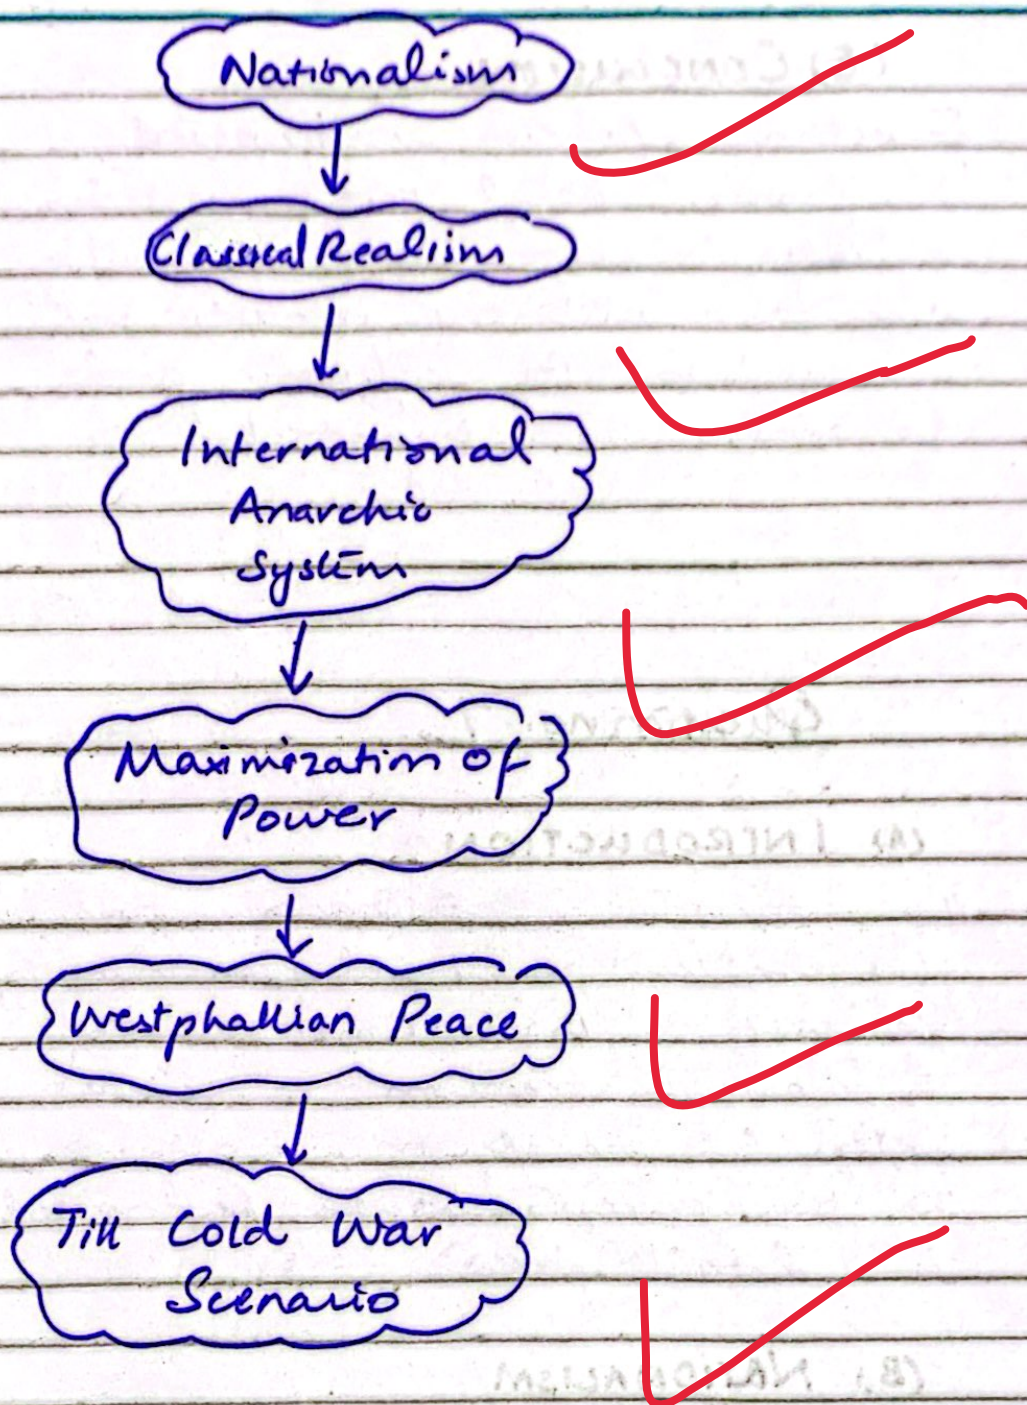 Nationalism
Classical Realism
International
Anarchic
System
Maximization of
Power
Westphallian Peace
Till Cold War
Scenario